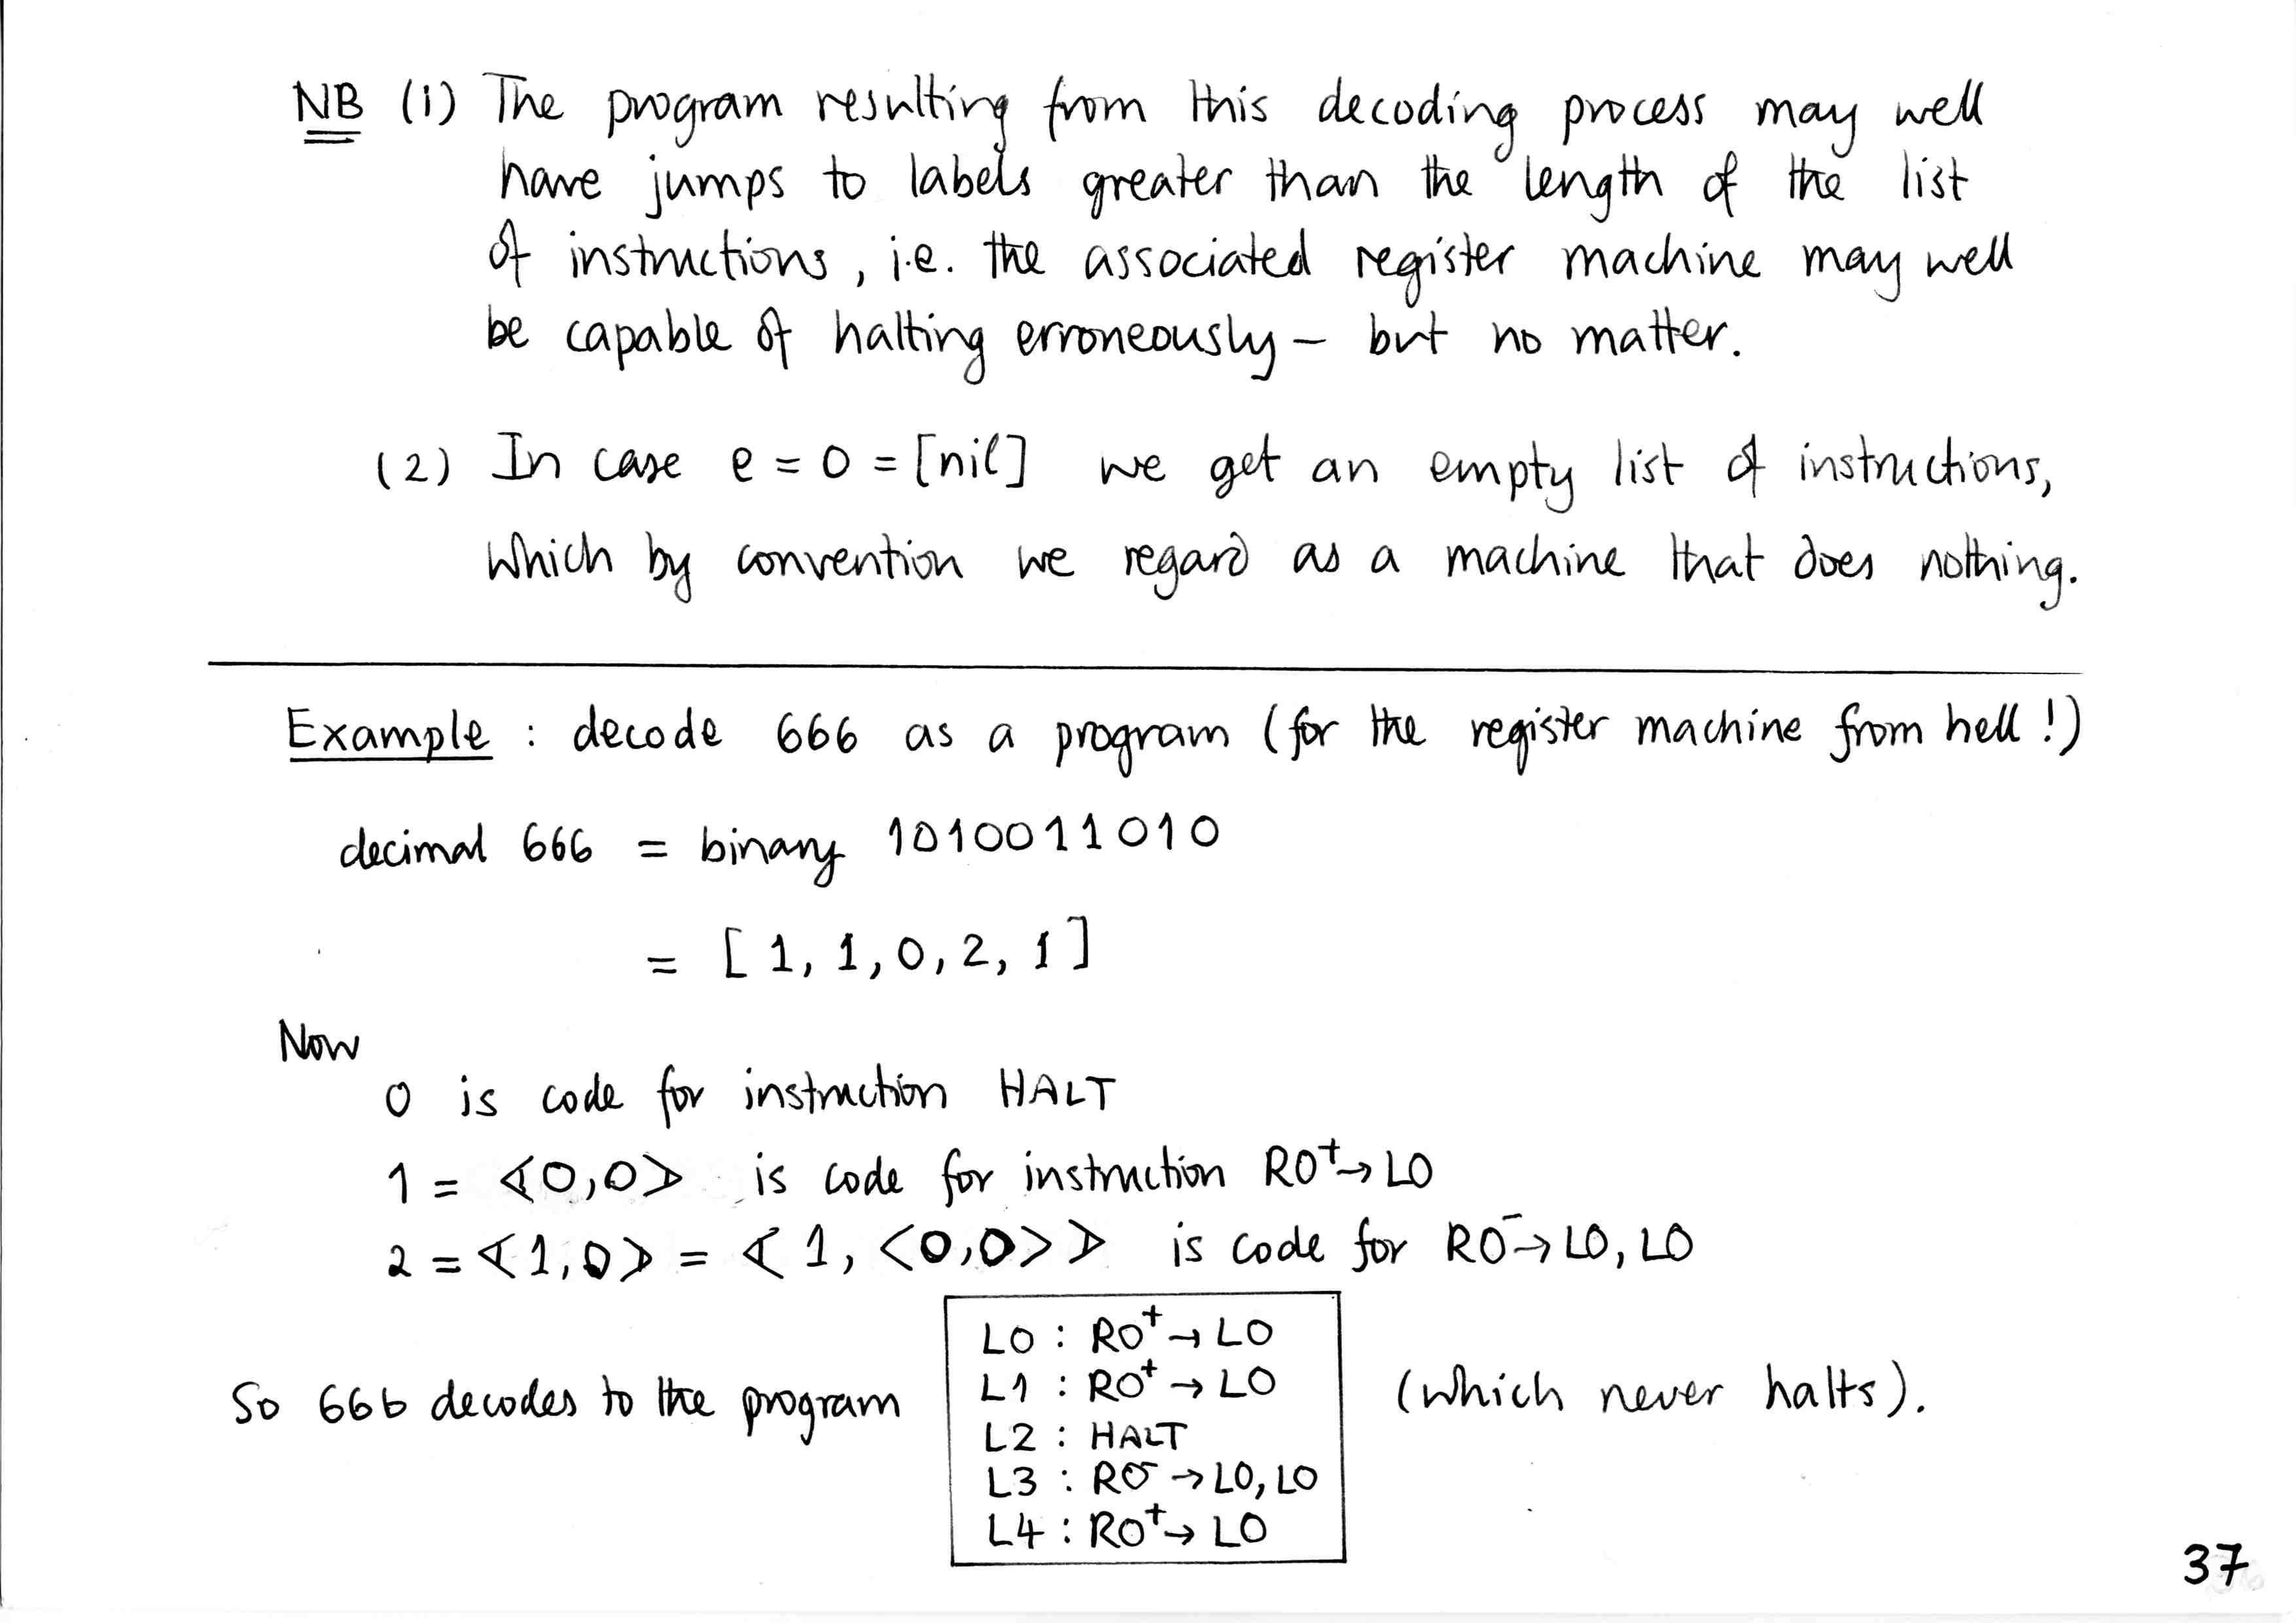 NB (1) The program resulting from this decoding process may well
have jumps to labels greater than the length of the list
of instructions, i.e. the associated register machine may well
be capable of halting erroneously – but no matter.
(2) In case e = 0 = [nil] we get an empty list of instructions,
which by convention we regard as a machine that does nothing.
Example : decode 666 as a program (for the register machine from hell !)
decimal 666 = binary 1010011010
= [1, 1, 0, 2, 1]
Now
0 is code for instruction HALT
1 = ⟪0,0⟫ is code for instruction R0⁺→ L0
2 = ⟪1,0⟫ = ⟪1, <0,0>⟫ is code for R0⁻→ L0, L0
L0 : R0⁺→ L0
L1 : R0⁺→ L0
So 666 decodes to the program (which never halts).
L2 : HALT
L3 : R0⁻→ L0, L0
L4 : R0⁺→ L0
37